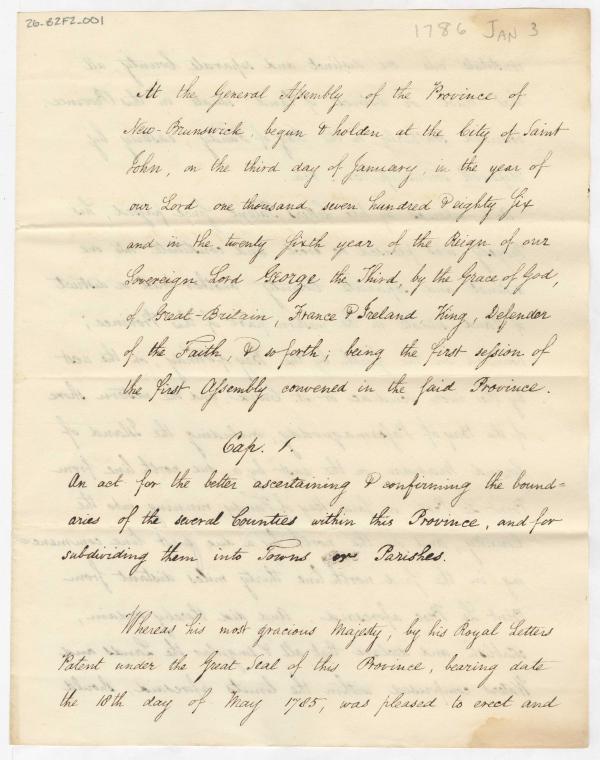 26-82F2-001
1786 JAN 3
At the General Aſsembly of the Province of
New-Brunswick begun & holden at the City of Saint
John, on the third day of January, in the year of
our Lord one thousand seven hundred & eighty ſix
and in the twenty ſixth year of the Reign of our
Sovereign Lord George the Third, by the Grace of God,
of Great-Britain, France & Ireland King, Defender
of the Faith, & so forth; being the first seſsion of
the first Aſsembly convened in the ſaid Province.
Cap. 1.
An act for the better ascertaining & confirming the bound=
aries of the several Counties within this Province, and for
subdividing them into Towns or Parishes.
Whereas his most gracious Majesty, by his Royal Letters
Patent under the Great Seal of this Province, bearing date
the 18th day of May 1785, was pleased to erect and